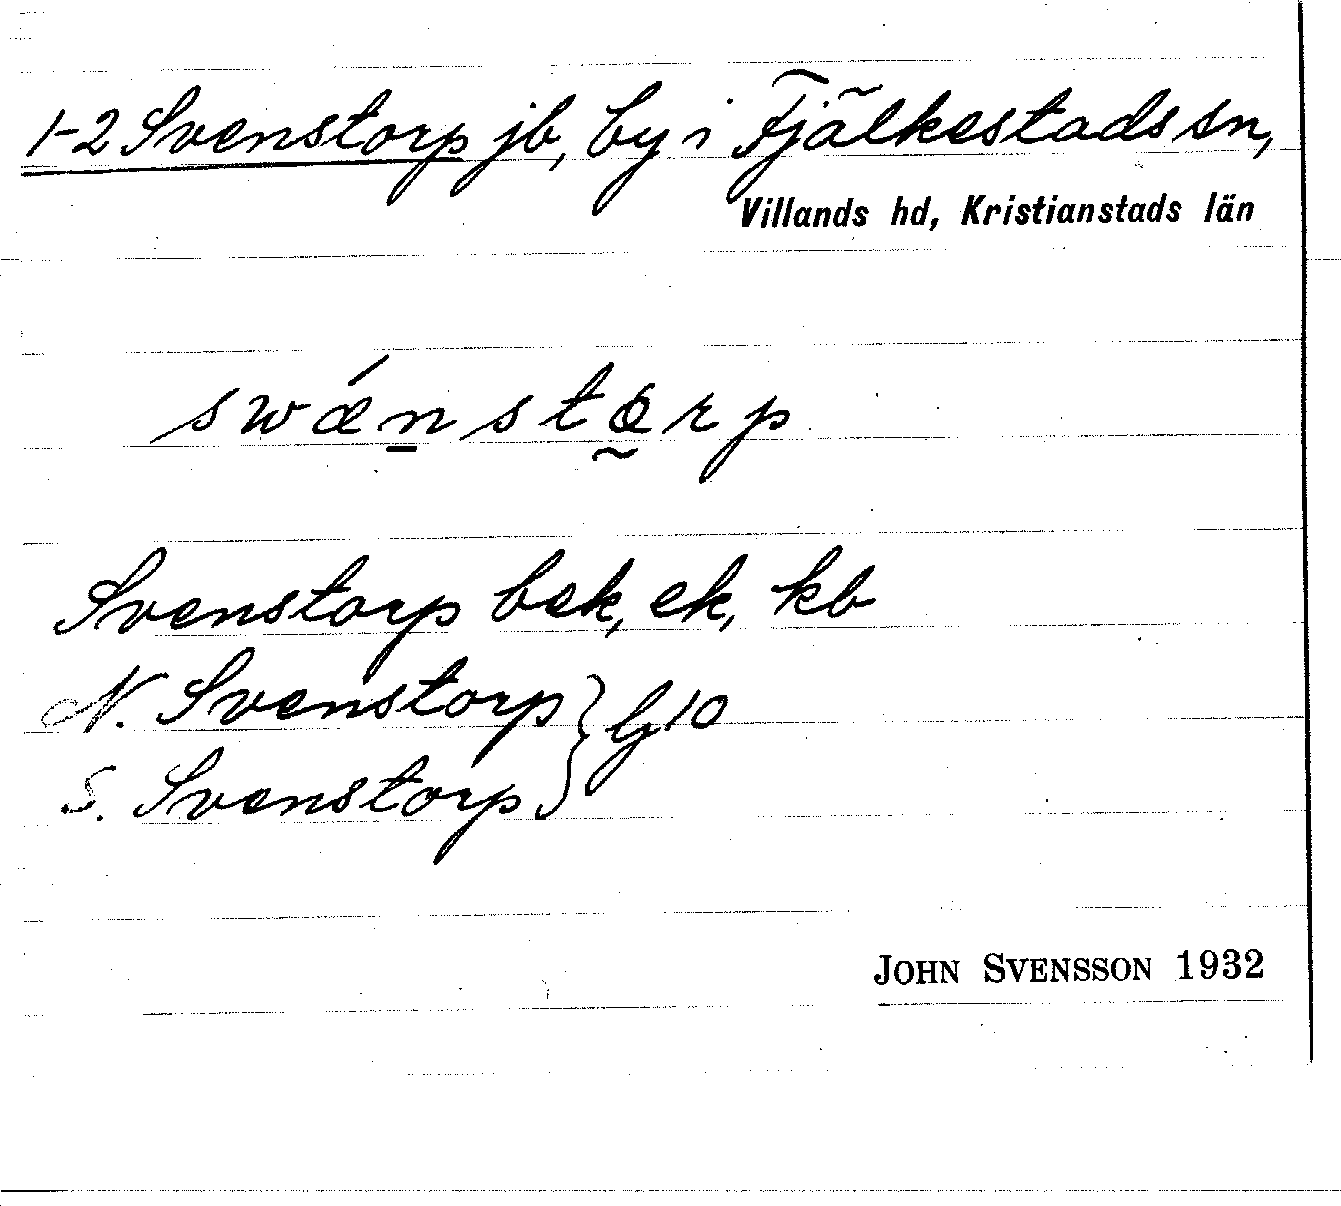 1-2 Svenstorp jb, by i Fjälkestads sn,
Villands hd, Kristianstads län
swǽn̠stɷ̰rp
Svenstorp bek, ek, kb
N. Svenstorp } Gj 10
S. Svenstorp
JOHN SVENSSON 1932